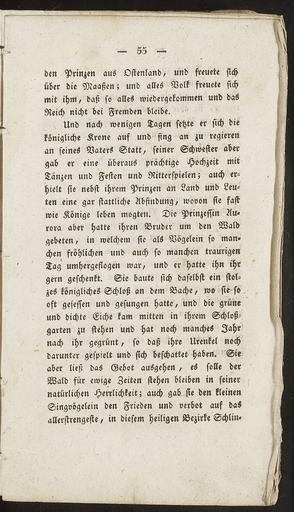 — 55 —
den Prinzen aus Ostenland, und freuete sich
über die Maaßen; und alles Volk freuete sich
mit ihm, daß so alles wiedergekommen und das
Reich nicht bei Fremden bleibe.
Und nach wenigen Tagen setzte er sich die
königliche Krone auf und fing an zu regieren
an seines Vaters Statt, seiner Schwester aber
gab er eine überaus prächtige Hochzeit mit
Tänzen und Festen und Ritterspielen; auch er-
hielt sie nebst ihrem Prinzen an Land und Leu-
ten eine gar stattliche Abfindung, wovon sie fast
wie Könige leben mogten. Die Prinzessin Au-
rora aber hatte ihren Bruder um den Wald
gebeten, in welchem sie als Vögelein so man-
chen fröhlichen und auch so manchen traurigen
Tag umhergeflogen war, und er hatte ihn ihr
gern geschenkt. Sie baute sich daselbst ein stol-
zes königliches Schloß an dem Bache, wo sie so
oft gesessen und gesungen hatte, und die grüne
und dichte Eiche kam mitten in ihrem Schloß-
garten zu stehen und hat noch manches Jahr
nach ihr gegrünt, so daß ihre Urenkel noch
darunter gespielt und sich beschattet haben. Sie
aber ließ das Gebot ausgehen, es solle der
Wald für ewige Zeiten stehen bleiben in seiner
natürlichen Herrlichkeit; auch gab sie den kleinen
Singvögelein den Frieden und verbot auf das
allerstrengeste, in diesem heiligen Bezirke Schlin-